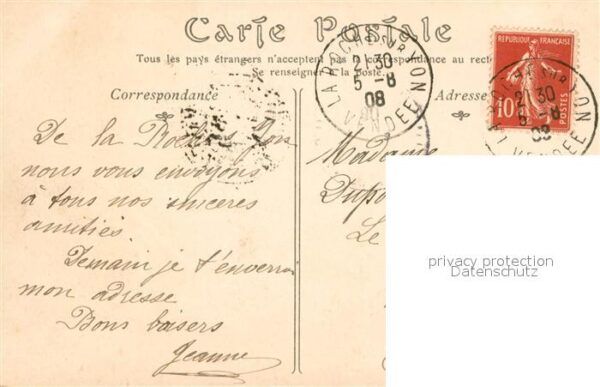 Carte Postale
Tous les pays étrangers n'acceptent pas la correspondance au recto
Se renseigner à la poste.
Correspondance
Adresse
LA ROCHE SUR YON
21 30
5 - 8
08
VENDEE
REPUBLIQUE FRANÇAISE
10
POSTES
LA ROCHE SUR YON
21 30
5 - 8
08
VENDEE
De la Roche s Yon
nous vous envoyons
à tous nos sinceres
amitiés.
Demain je t'enverrai
mon adresse
Bons baisers
Jeanne
Madame
Dupo
Le
privacy protection
Datenschutz